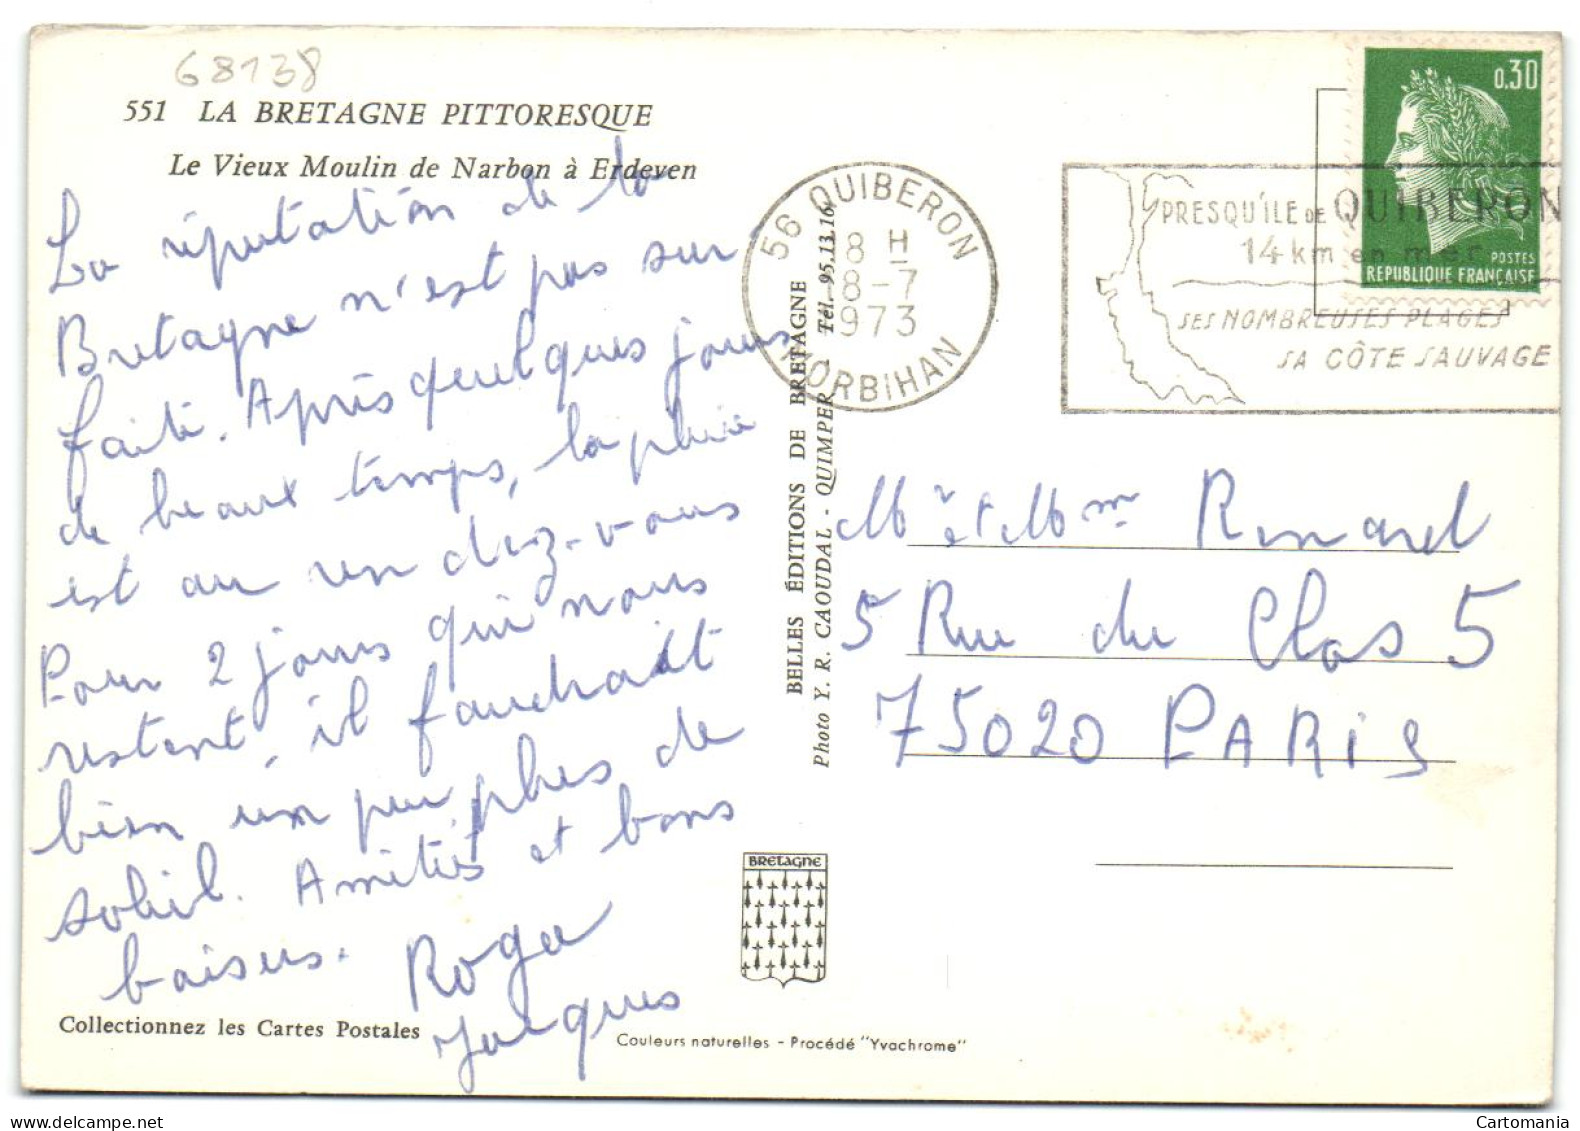 68138
551 LA BRETAGNE PITTORESQUE
Le Vieux Moulin de Narbon à Erdeven
La réputation de la
Bretagne n'est pas sur-
faite. Après quelques jours
de beaux temps, la pluie
est au ren dez-vous
Pour 2 jours qui nous
restent, il faudrait
bien un peu plus de
soleil. Amitiés et bons
baisers.
Roger
Jacques
Collectionnez les Cartes Postales
BELLES ÉDITIONS DE BRETAGNE
Photo Y. R. CAOUDAL - QUIMPER - Tél. 95.13.16
BRETAGNE
Couleurs naturelles - Procédé "Yvachrome"
56 QUIBERON
18 H
18-7
1973
MORBIHAN
PRESQU'ÎLE DE QUIBERON
14 km en mer
SES NOMBREUSES PLAGES
SA CÔTE SAUVAGE
0.30
POSTES
REPUBLIQUE FRANÇAISE
Mr et Mme Renard
5 Rue du Clos 5
75020 PARIS
Cartomania